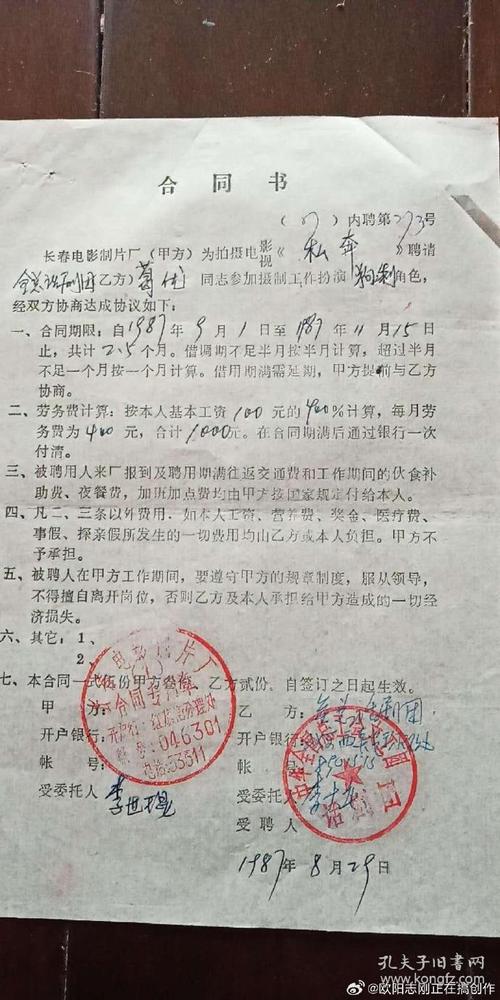 合同书
(87)内聘第273号
长春电影制片厂(甲方)为拍摄电影视《私奔》聘请
全总话剧团乙方)葛优同志参加摄制工作扮演狗剩角色,
经双方协商达成协议如下:
一、合同期限:自1987年9月1日至1987年11月15日
止,共计2.5个月。借调期不足半月按半月计算,超过半月
不足一个月按一个月计算。借用期满需延期,甲方提前与乙方
协商。
二、劳务费计算:按本人基本工资100元的400%计算,每月劳
务费为400元,合计1000元。在合同期满后通过银行一次
付清。
三、被聘用人来厂报到及聘用期满往返交通费和工作期间的伙食补
助费、夜餐费,加班加点费均由甲方按国家规定付给本人。
四、凡二、三条以外费用,如本人工资、营养费、奖金、医疗费、
事假、探亲假所发生的一切费用均由乙方或本人负担。甲方不
予承担。
五、被聘人在甲方工作期间,要遵守甲方的规章制度,服从领导,
不得擅自离开岗位,否则乙方及本人承担给甲方造成的一切经
济损失。
六、其它:1、
2、
七、本合同一式伍份甲方叁份,乙方贰份,自签订之日起生效。
甲方: 乙方:全总话剧团
开户银行: 开户银行:
帐号: 帐号:
受委托人 受委托人
受聘人
1987年8月29日
电影制片厂
合同专用章
046301
电话:53311
话剧团
孔夫子旧书网
@欧阳志刚正在搞创作